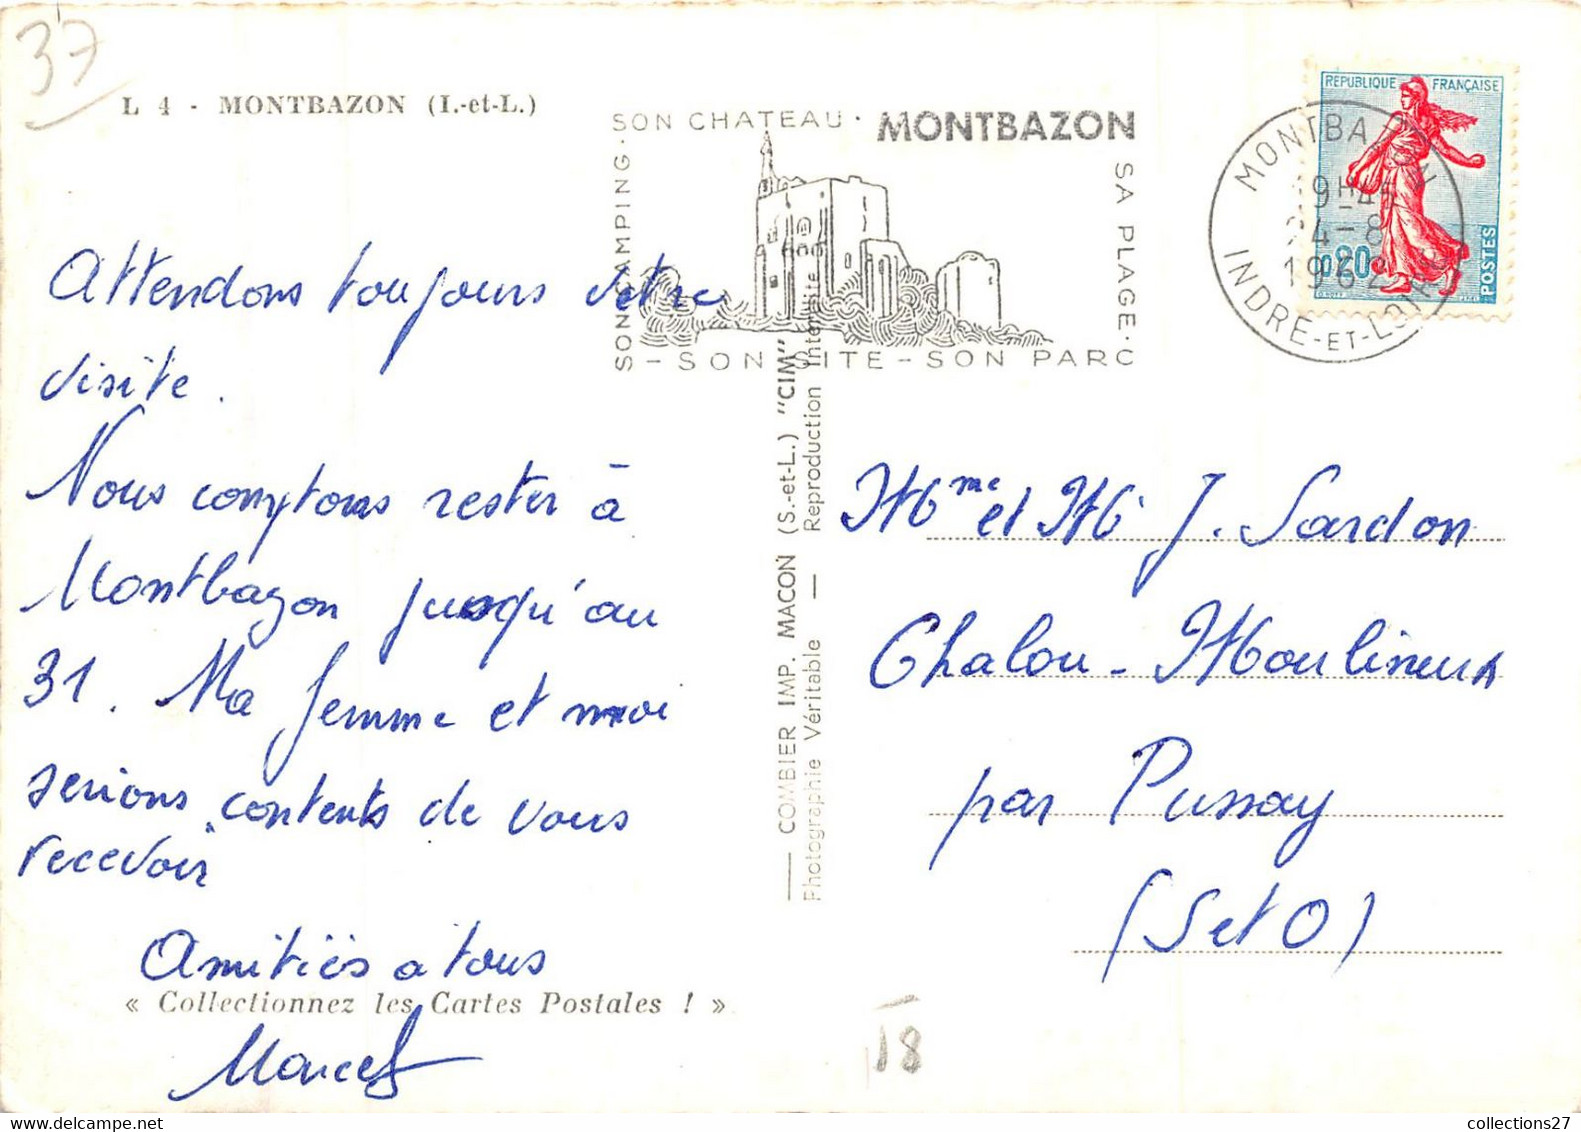 37
L 4 - MONTBAZON (I.-et-L.)
SON CHATEAU · MONTBAZON
SON CAMPING ·
SA PLAGE ·
- SON SITE - SON PARC
REPUBLIQUE FRANÇAISE
0,20
POSTES
MONTBAZON
19H45
24-8
1962
INDRE-ET-LOIRE
Attendons toujours votre
visite.
Nous comptons rester à
Montbazon jusqu'au
31. Ma femme et moi
serions contents de vous
recevoir
Amitiés a tous
« Collectionnez les Cartes Postales ! »
Marcel
— COMBIER IMP. MACON (S.-et-L.) "CIM"
Photographie Véritable — Reproduction Interdite
Mme et M J. Sardon
Chalou-Moulineux
par Pussay
(S et O)
18
www.delcampe.net
collections27